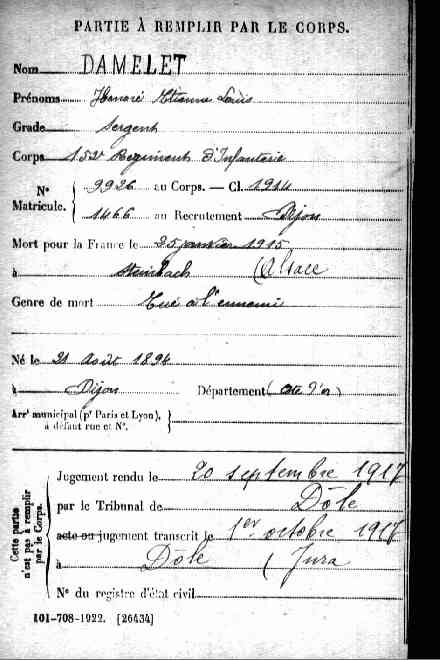 PARTIE À REMPLIR PAR LE CORPS.
Nom DAMELET
Prénoms Honoré Etienne Louis
Grade Sergent
Corps 152e Regiment d'Infanterie
N° Matricule. 9926 au Corps. — Cl. 1914
1466 au Recrutement Dijon
Mort pour la France le 25 janvier 1915
à Steinbach (Alsace
Genre de mort Tué à l'ennemi
Né le 21 Août 1894
à Dijon Département (Cote d'or)
Arrt municipal (pr Paris et Lyon),
à défaut rue et N°.
Cette partie
n'est pas à remplir
par le Corps.
Jugement rendu le 20 septembre 1917
par le Tribunal de Dôle
acte ou jugement transcrit le 1er octobre 1917
à Dôle (Jura
N° du registre d'état civil
101-708-1922. [26434]